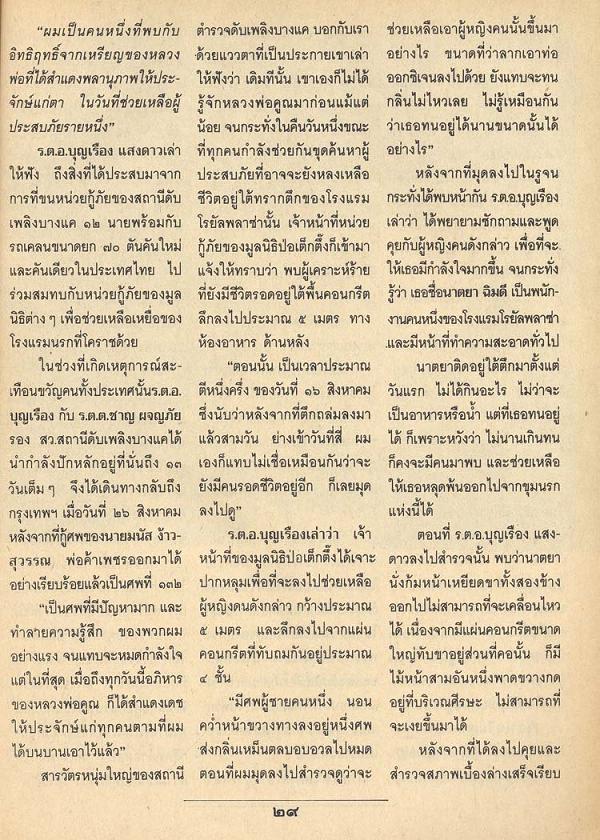 “ผมเป็นคนหนึ่งที่พบกับ
อิทธิฤทธิ์จากเหรียญของหลวง
พ่อที่ได้สำแดงพลานุภาพให้ประ-
จักษ์แก่ตา ในวันที่ช่วยเหลือผู้
ประสบภัยรายหนึ่ง”
ร.ต.อ.บุญเรือง แสงดาวเล่า
ให้ฟัง ถึงสิ่งที่ได้ประสบมาจาก
การที่ขนหน่วยกู้ภัยของสถานีดับ
เพลิงบางแค ๑๒ นายพร้อมกับ
รถเคลนขนาดยก ๗๐ ตันคันใหม่
และคันเดียวในประเทศไทย ไป
ร่วมสมทบกับหน่วยกู้ภัยของมูล
นิธิต่าง ๆ เพื่อช่วยเหลือเหยื่อของ
โรงแรมนรกที่โคราชด้วย
ในช่วงที่เกิดเหตุการณ์สะ-
เทือนขวัญคนทั้งประเทศนั้นร.ต.อ.
บุญเรือง กับ ร.ต.ต.ชาญ ผจญภัย
รอง สว.สถานีดับเพลิงบางแคได้
นำกำลังปักหลักอยู่ที่นั่นถึง ๑๓
วันเต็ม ๆ จึงได้เดินทางกลับถึง
กรุงเทพฯ เมื่อวันที่ ๒๖ สิงหาคม
หลังจากที่กู้ศพของนายมนัส ง้าว-
สุวรรณ พ่อค้าเพชรออกมาได้
อย่างเรียบร้อยแล้วเป็นศพที่ ๑๓๒
“เป็นศพที่มีปัญหามาก และ
ทำลายความรู้สึก ของพวกผม
อย่างแรง จนแทบจะหมดกำลังใจ
แต่ในที่สุด เมื่อถึงทุกวันนี้อภิหาร
ของหลวงพ่อคูณ ก็ได้สำแดงเดช
ให้ประจักษ์แก่ทุกคนตามที่ผม
ได้บนบานเอาไว้แล้ว”
สารวัตรหนุ่มใหญ่ของสถานี
ตำรวจดับเพลิงบางแค บอกกับเรา
ด้วยแววตาที่เป็นประกายเขาเล่า
ให้ฟังว่า เดิมทีนั้น เขาเองก็ไม่ได้
รู้จักหลวงพ่อคูณมาก่อนแม้แต่
น้อย จนกระทั่งในคืนวันหนึ่งขณะ
ที่ทุกคนกำลังช่วยกันขุดค้นหาผู้
ประสบภัยที่อาจจะยังหลงเหลือ
ชีวิตอยู่ใต้ทรากตึกของโรงแรม
โรยัลพลาซ่านั้น เจ้าหน้าที่หน่วย
กู้ภัยของมูลนิธิป่อเต็กตึ๊งก็เข้ามา
แจ้งให้ทราบว่า พบผู้เคราะห์ร้าย
ที่ยังมีชีวิตรอดอยู่ใต้พื้นคอนกรีต
ลึกลงไปประมาณ ๕ เมตร ทาง
ห้องอาหาร ด้านหลัง
“ตอนนั้น เป็นเวลาประมาณ
ตีหนึ่งครึ่ง ของวันที่ ๑๖ สิงหาคม
ซึ่งนับว่าหลังจากที่ตึกถล่มลงมา
แล้วสามวัน ย่างเข้าวันที่สี่ ผม
เองก็แทบไม่เชื่อเหมือนกันว่าจะ
ยังมีคนรอดชีวิตอยู่อีก ก็เลยมุด
ลงไปดู”
ร.ต.อ.บุญเรืองเล่าว่า เจ้า
หน้าที่ของมูลนิธิป่อเต็กตึ๊งได้เจาะ
ปากหลุมเพื่อที่จะลงไปช่วยเหลือ
ผู้หญิงคนดังกล่าว กว้างประมาณ
๕ เมตร และลึกลงไปจากแผ่น
คอนกรีตที่ทับถมกันอยู่ประมาณ
๔ ชั้น
“มีศพผู้ชายคนหนึ่ง นอน
คว่ำหน้าขวางทางลงอยู่หนึ่งศพ
ส่งกลิ่นเหม็นตลบอบอวลไปหมด
ตอนที่ผมมุดลงไปสำรวจดูว่าจะ
ช่วยเหลือเอาผู้หญิงคนนั้นขึ้นมา
อย่างไร ขณะที่ว่าลากเอาท่อ
ออกซิเจนลงไปด้วย ยังแทบจะทน
กลิ่นไม่ไหวเลย ไม่รู้เหมือนกัน
ว่าเธอทนอยู่ได้นานขนาดนั้นได้
อย่างไร”
หลังจากที่มุดลงไปในรูจน
กระทั่งได้พบหน้ากัน ร.ต.อ.บุญเรือง
เล่าว่า ได้พยายามซักถามและพูด
คุยกับผู้หญิงคนดังกล่าว เพื่อที่จะ
ให้เธอมีกำลังใจมากขึ้น จนกระทั่ง
รู้ว่า เธอชื่อนาตยา ฉิมดี เป็นพนัก-
งานคนหนึ่งของโรงแรมโรยัลพลาซ่า
และมีหน้าที่ทำความสะอาดทั่วไป
นาตยาติดอยู่ใต้ตึกมาตั้งแต่
วันแรก ไม่ได้กินอะไร ไม่ว่าจะ
เป็นอาหารหรือน้ำ แต่ที่เธอทนอยู่
ได้ ก็เพราะหวังว่า ไม่นานเกินทน
ก็คงจะมีคนมาพบ และช่วยเหลือ
ให้เธอหลุดพ้นออกไปจากขุมนรก
แห่งนี้ได้
ตอนที่ ร.ต.อ.บุญเรือง แสง-
ดาวลงไปสำรวจนั้น พบว่านาตยา
นั่งก้มหน้าเหยียดขาทั้งสองข้าง
ออกไปไม่สามารถที่จะเคลื่อนไหว
ได้ เนื่องจากมีแผ่นคอนกรีตขนาด
ใหญ่ทับขาอยู่ส่วนที่คอนั้น ก็มี
ไม้หน้าสามอันหนึ่งพาดขวางกด
อยู่ที่บริเวณศีรษะ ไม่สามารถที่
จะเงยขึ้นมาได้
หลังจากที่ได้ลงไปคุยและ
สำรวจสภาพเบื้องล่างเสร็จเรียบ
๒๙